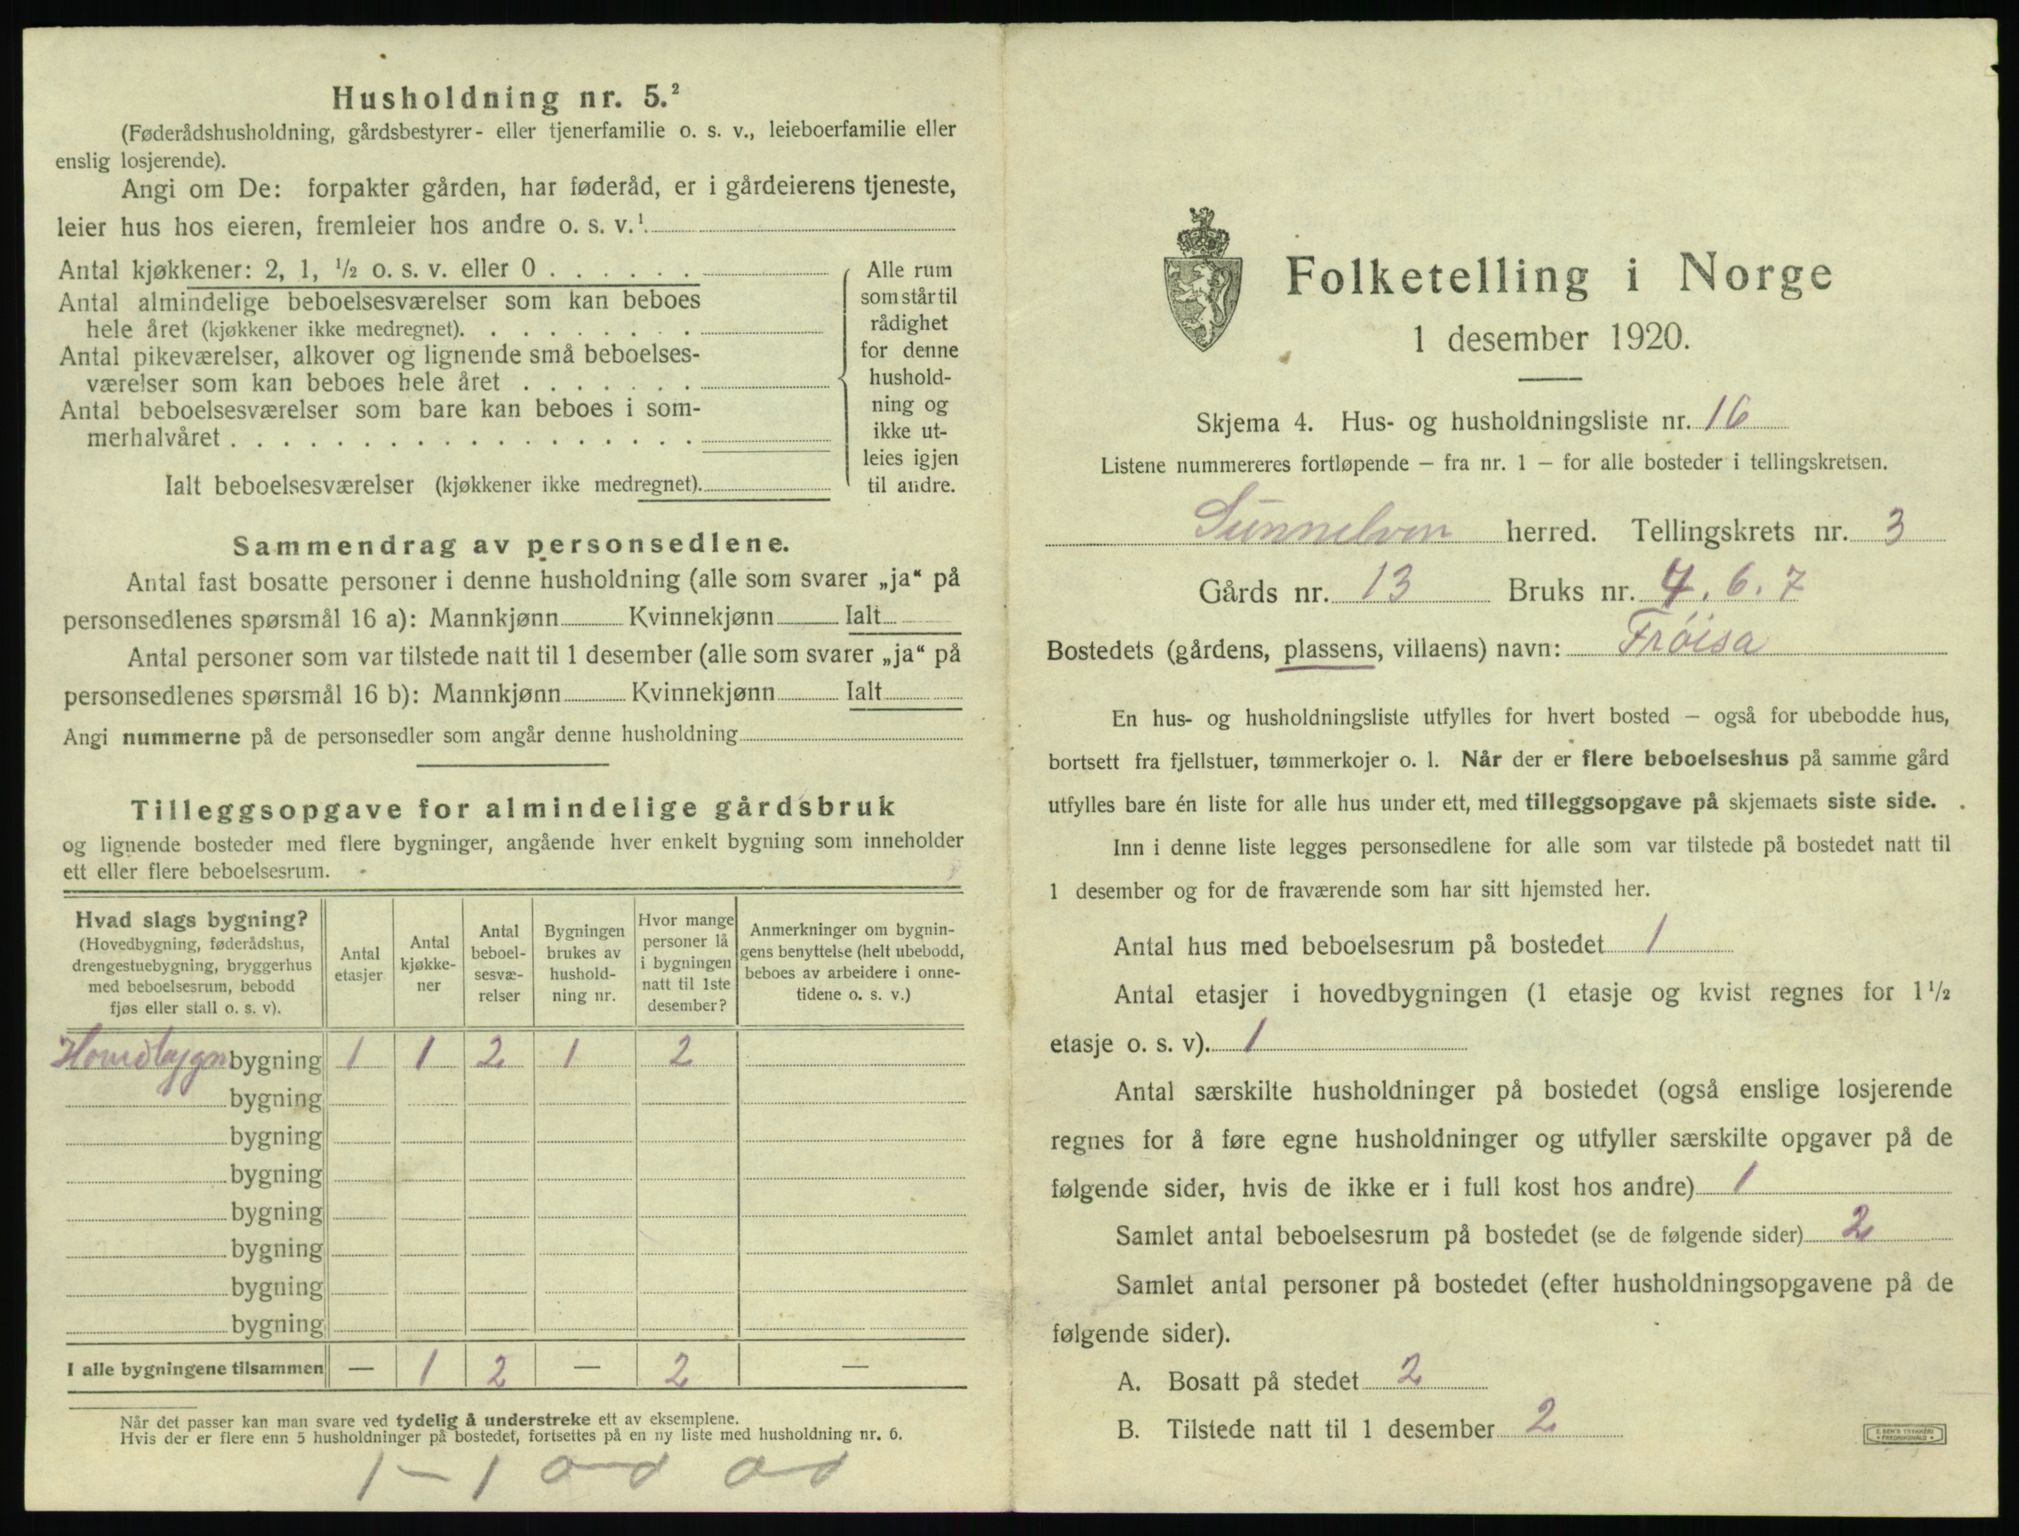 Husholdning nr. 5.²
(Føderådshusholdning, gårdsbestyrer- eller tjenerfamilie o. s. v., leieboerfamilie eller
enslig losjerende).
Angi om De: forpakter gården, har føderåd, er i gårdeierens tjeneste,
leier hus hos eieren, fremleier hos andre o. s. v.¹
Antal kjøkkener: 2, 1, ½ o. s. v. eller 0
Antal almindelige beboelsesværelser som kan beboes
hele året (kjøkkener ikke medregnet).
Antal pikeværelser, alkover og lignende små beboelses-
værelser som kan beboes hele året
Antal beboelsesværelser som bare kan beboes i som-
merhalvåret
Ialt beboelsesværelser (kjøkkener ikke medregnet).
Alle rum
som står til
rådighet
for denne
hushold-
ning og
ikke ut-
leies igjen
til andre.
Sammendrag av personsedlene.
Antal fast bosatte personer i denne husholdning (alle som svarer „ja“ på
personsedlenes spørsmål 16 a): Mannkjønn Kvinnekjønn Ialt
Antal personer som var tilstede natt til 1 desember (alle som svarer „ja“ på
personsedlenes spørsmål 16 b): Mannkjønn Kvinnekjønn Ialt
Angi nummerne på de personsedler som angår denne husholdning
Tilleggsopgave for almindelige gårdsbruk
og lignende bosteder med flere bygninger, angående hver enkelt bygning som inneholder
ett eller flere beboelsesrum.
Hvad slags bygning?
(Hovedbygning, føderådshus,
drengestuebygning, bryggerhus
med beboelsesrum, bebodd
fjøs eller stall o. s. v).
Antal
etasjer
Antal
kjøkke-
ner
Antal
beboel-
sesvæ-
relser
Bygningen
brukes av
hushold-
ning nr.
Hvor mange
personer lå
i bygningen
natt til 1ste
desember?
Anmerkninger om bygnin-
gens benyttelse (helt ubebodd,
beboes av arbeidere i onne-
tidene o. s. v.)
Hovedbygn bygning 1 1 2 1 2
bygning
bygning
bygning
bygning
bygning
bygning
bygning
I alle bygningene tilsammen — 1 2 — 2 —
Når det passer kan man svare ved tydelig å understreke ett av eksemplene.
Hvis der er flere enn 5 husholdninger på bostedet, fortsettes på en ny liste med husholdning nr. 6.
1 – 1
Folketelling i Norge
1 desember 1920.
Skjema 4. Hus- og husholdningsliste nr. 16
Listene nummereres fortløpende – fra nr. 1 – for alle bosteder i tellingskretsen.
Sunnelven herred. Tellingskrets nr. 3
Gårds nr. 13 Bruks nr. 4. 6. 7
Bostedets (gårdens, plassens, villaens) navn: Frøisa
En hus- og husholdningsliste utfylles for hvert bosted – også for ubebodde hus,
bortsett fra fjellstuer, tømmerkojer o. l. Når der er flere beboelseshus på samme gård
utfylles bare én liste for alle hus under ett, med tilleggsopgave på skjemaets siste side.
Inn i denne liste legges personsedlene for alle som var tilstede på bostedet natt til
1 desember og for de fraværende som har sitt hjemsted her.
Antal hus med beboelsesrum på bostedet 1
Antal etasjer i hovedbygningen (1 etasje og kvist regnes for 1½
etasje o. s. v). 1
Antal særskilte husholdninger på bostedet (også enslige losjerende
regnes for å føre egne husholdninger og utfyller særskilte opgaver på de
følgende sider, hvis de ikke er i full kost hos andre) 1
Samlet antal beboelsesrum på bostedet (se de følgende sider) 2
Samlet antal personer på bostedet (efter husholdningsopgavene på de
følgende sider).
A. Bosatt på stedet 2
B. Tilstede natt til 1 desember 2